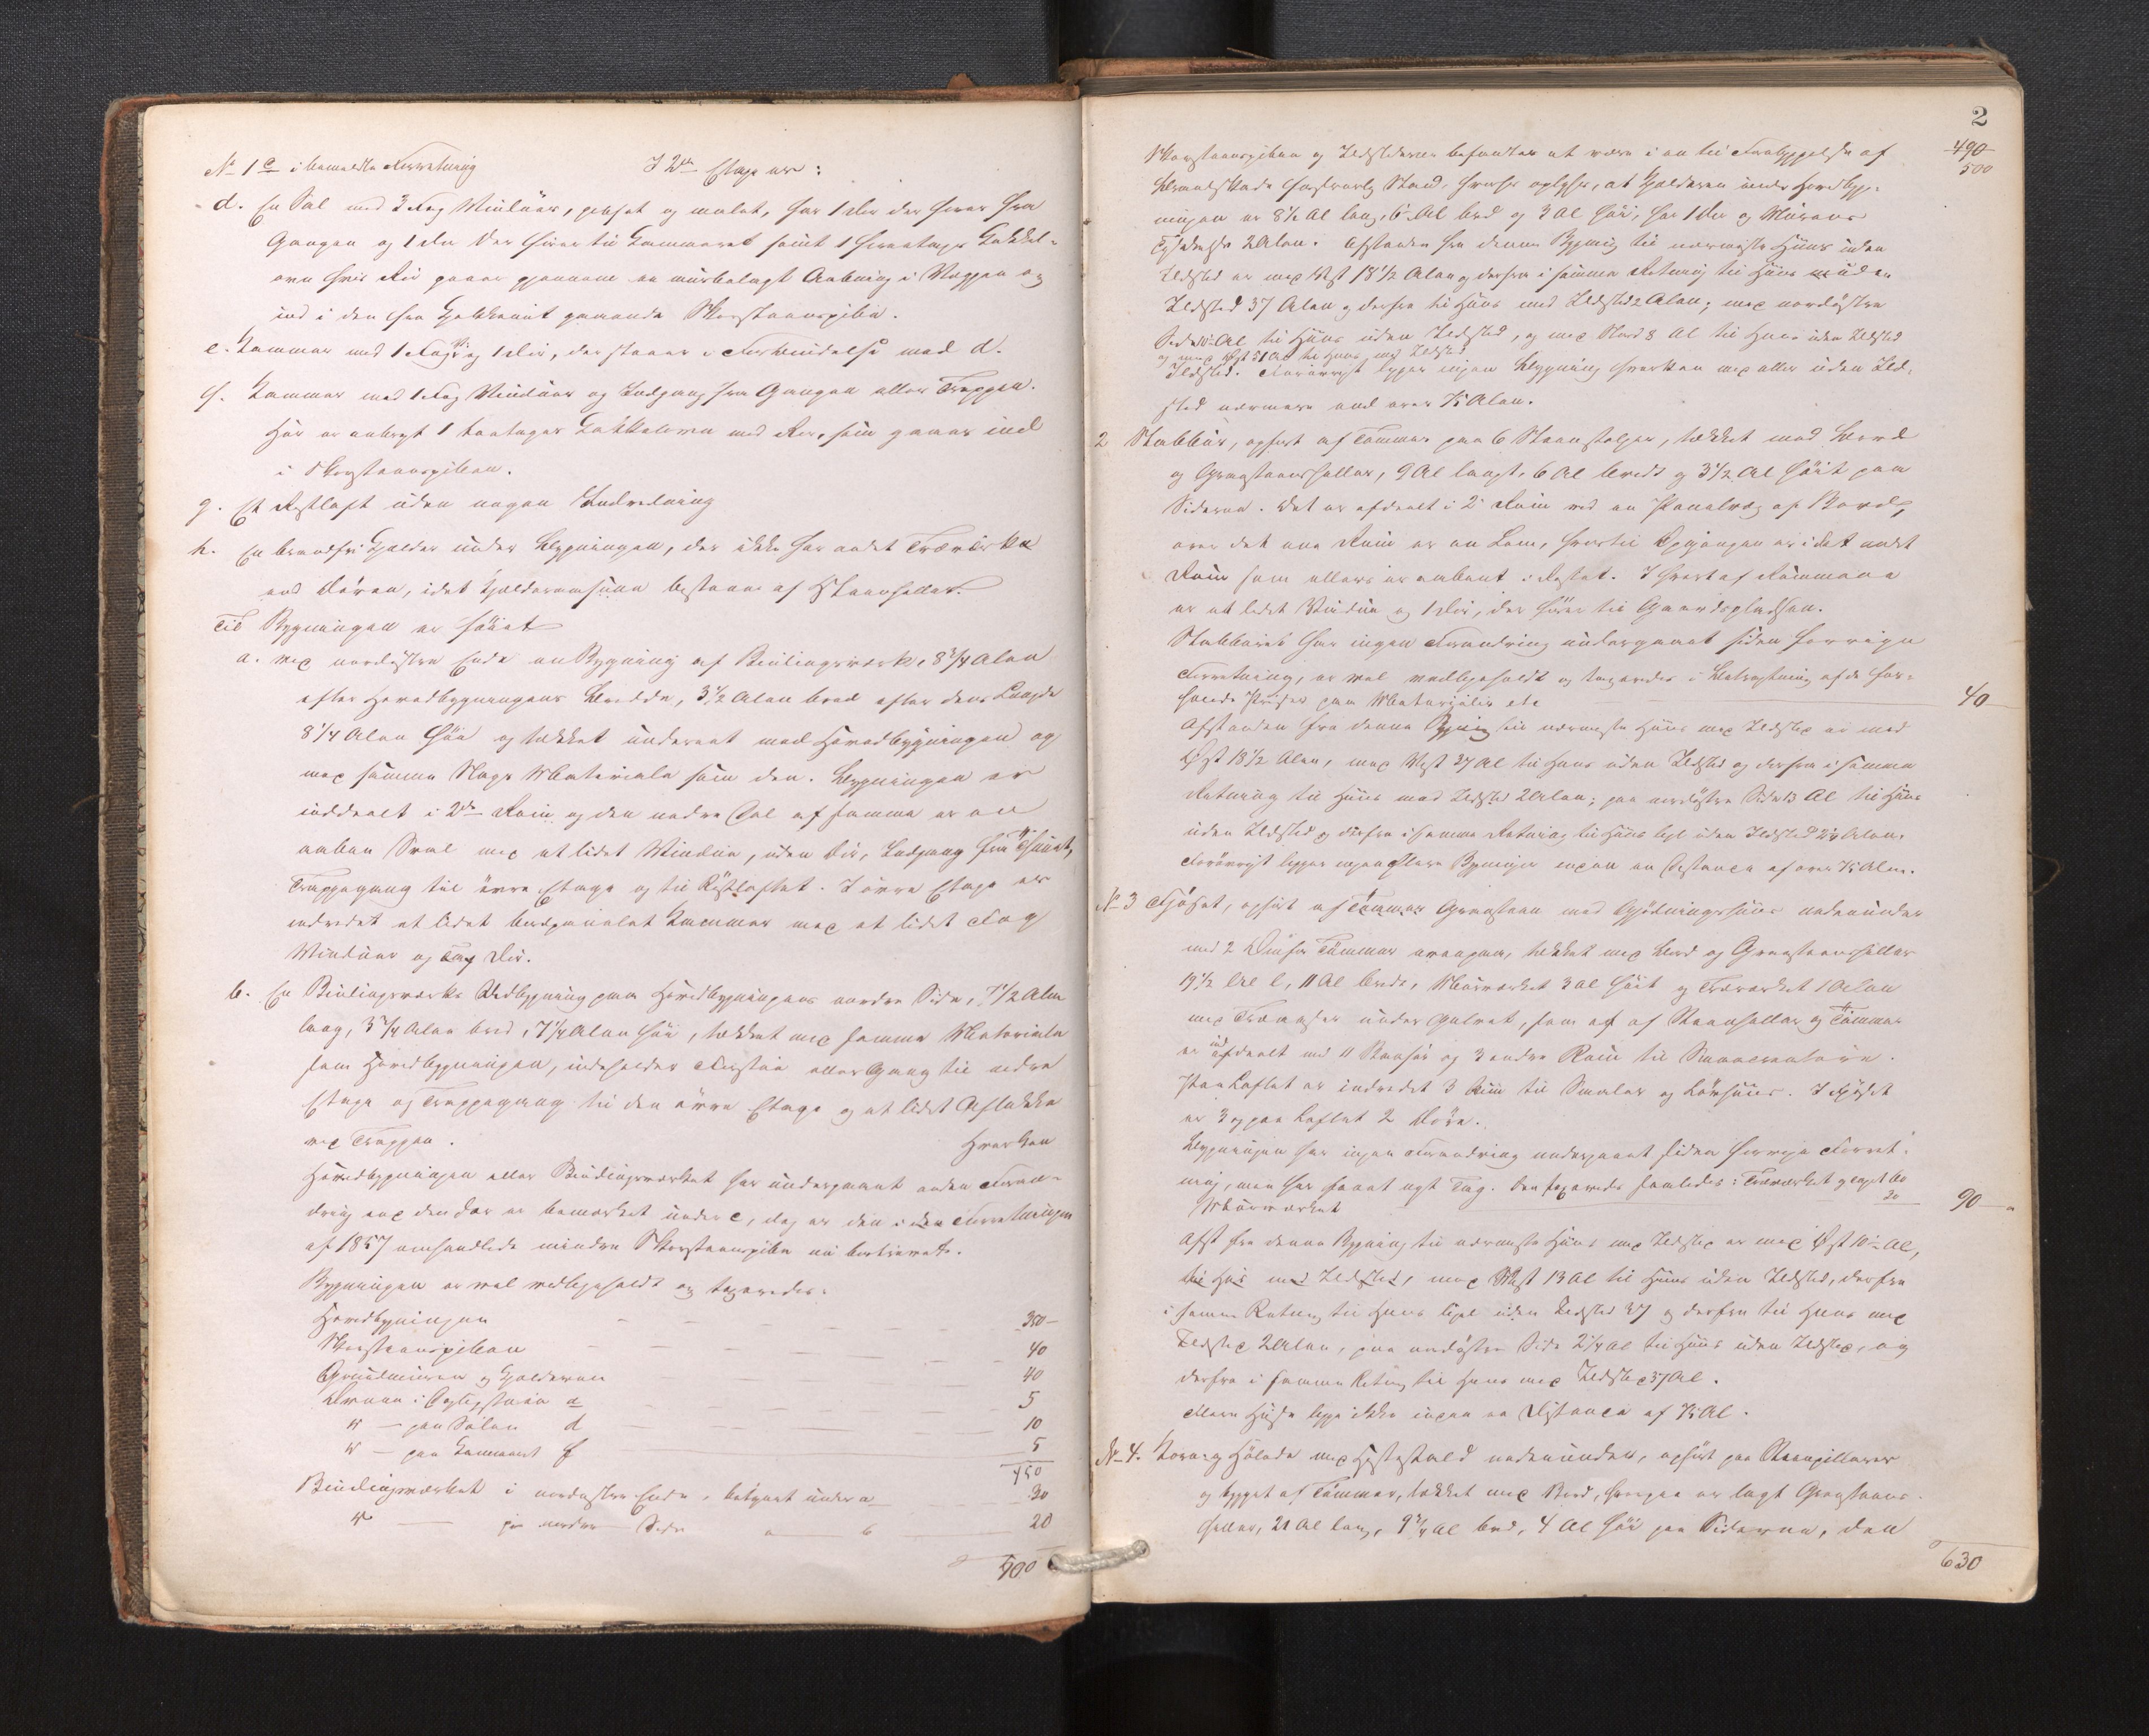 No 1 c i bemeldte Forretning I 2den Etage er:
d. En Sal med 3 Fag Vinduer, gibset og malet, har 1 Dør der fører fra
Gangen og 1 Dør der fører til Kammeret samt 1 Kakkel-
ovn hvis Rør gaaer gjennem en muurbelagt Aabning i Væggen og
ind i den fra Kjøkkenet gaaende Skorsteenspibe.
e. Kammer med 1 Fag og 1 Dør, der staaer i Forbindelse med d.
f. Kammer med 1 Fag Vinduer og Indgang fra Gangen eller Trappen.
Her er anbragt 1 toetages Kakkelovn med Rør, som gaaer ind
i Skorsteenspiben.
g. Et Røstloft uden nogen Indredning
h. En brandfri Kjelder under Bygningen, der ikke har andet Træværk
end Døren, idet bestaaer af Steenheller.
Til Bygningen er føiet
a. ved nordøstre Ende en Bygning af Bindingsværk, 8 3/4 Alen
efter Hovedbygningens Bredde, 3 1/2 Alen bred efter dens Længde
8 1/4 Alen høi og tækket underet med Hovedbygningen og
med samme Slags Materiale som den. Bygningen er
inddeelt i 2de Rum og den nedre Del af samme er en
aaben Sval med et lidet Vindue, uden Dør, Indgang fra
Trappegang til øvre Etage og til Røstloftet. I øvre Etage er
indredet et lidet bordpanelet Kammer med et lidet Fag
Vinduer og Dør.
b. En Bindingsværks Udbygning paa Hovedbygningens nordre Side, 7 1/2 Alen
lang, 3 3/4 Alen bred, 7 1/4 Alen høi, tækket med samme Materiale
som Hovedbygningen, indeholder Forstue eller Gang til nedre
Etage og Trappegang til den øvre Etage og et lidet Aflukke
ved Trappen. Hverken
Hovedbygningen eller Bindingsværket har undergaaet anden Foran-
dring end den der er bemærket under c, dog er den i den Forretningen
af 1857 omhandlede mindre Skorsteenspibe nu borttaget.
Bygningen er vel vedligeholdt og taxeredes:
Hovedbygningen 350
Skorsteenspiben 40
Grundmuren og Kjelderen 40
Ovnen i a 5
" — paa Salen d 10
" — paa Kammeret f 5
450
Bindingsværket i nordøstre Ende, betegnet under a 30
" — paa nordre Side " — b 20
500
2
Skorsteenspiben og Ildstederne befandtes at være i en til Forebyggelse af 490
Brandskade forsvarlig Stand, hvorhos oplyses, at Kjelderen under Hovedbyg- 500
ningen er 8 1/2 Al lang, 6 Al bred og 3 Al høi, har 1 Dør og Murens
Tykkelse 2 Alen. Afstanden fra denne Bygning til nærmeste Huus uden
Ildsted er mod Vest 18 1/2 Alen og derfra i samme Retning til Huus uden
Ildsted 37 Alen og derfra til Huus med Ildsted 2 Alen; mod nordøstre
Side Al til Huus uden Ildsted, og mod Nord 8 Al til Huus uden Ildsted
og mod Øst 51 Al til Huus med Ildsted
Ildsted. Forøvrigt ligger ingen Bygning hverken med eller uden Ild-
sted nærmere end over 75 Alen.
2 Stabbur, opført af Tømmer paa 6 Steenstolper, tækket med Bord
og Graasteensheller, 9 Al langt, 6 Al bredt og 3 1/2 Al høit paa
Siderne. Det er afdeelt i 2 Rum ved en Panelvæg af Bord,
over det ene Rum er en Lem, hvortil Opgangen er i det andet
Rum som ellers er aabent i Røstet. I hvert af Rummene
er et lidet Vindue og 1 Dør, der fører til Gaardspladsen.
Stabburet har ingen Forandring undergaaet siden forrige
Forretning, er vel vedligeholdt og taxeredes i Betragtning af de for-
høiede Priser paa Materialier etc 40
Afstanden fra denne Bygning til nærmeste Huus med Ildsted er mod
Øst 18 1/2 Alen, mod Vest 27 Al til Huus uden Ildsted og derfra i samme
Retning til Huus med Ildsted 2 Alen; paa nordøstre Side 13 Al til Huus
uden Ildsted og derfra i samme Retning til Huus lige uden Ildsted 2 1/4 Alen.
Forøvrigt ligger ingen flere Bygninger inden en Distance af over 75 Alen.
No 3 Fjøset, opført af Tømmer Graasteen med Gjødningshuus nedenunder
med 2 Tømmer ovenpaa, tækket med Bord og Graasteensheller
19 1/2 Al l, 11 Al bredt, Muurværket 3 Al høit og Træværket 1 Alen
med under Gulvet, som er af Steenheller og Tømmer
er inddeelt med 11 Baase og 3 andre Rum til Smaacreature.
Paa Loftet er indredet 3 Rum til Smaler og Løvhuus. I Fjøset
er 3 og paa Loftet 2 Døre.
Bygningen har ingen Forandring undergaaet siden forrige Forret-
ning, men har faaet nyt Tag. Den taxeredes saaledes: Træværket og taget 60
Muurværket 30 90
Afst fra denne Bygning til nærmeste Huus med Ildsted er mod Øst 10 Al,
til Huus med Ildsted, mod Vest 13 Al til Huus uden Ildsted, derfra
i samme Retning til Huus lige uden Ildsted 37 og derfra til Huus med
Ildsted 2 Alen, paa nordøstre Side 2 1/4 Al til Huus uden Ildsted, og
derfra i samme Retning til Huus med Ildsted 37 Al.
Flere Huse ligge ikke inden en Distance af 75 Al.
No 4. Korn og Hølade med Hestestald nedenunder, opført paa Steenpillarer
og bygget af Tømmer, tækket med Bord, hvorpaa er lagt Graasteens-
heller, 21 Al lang, 9 3/4 Al bred, 4 Al høi paa Siderne, den
630